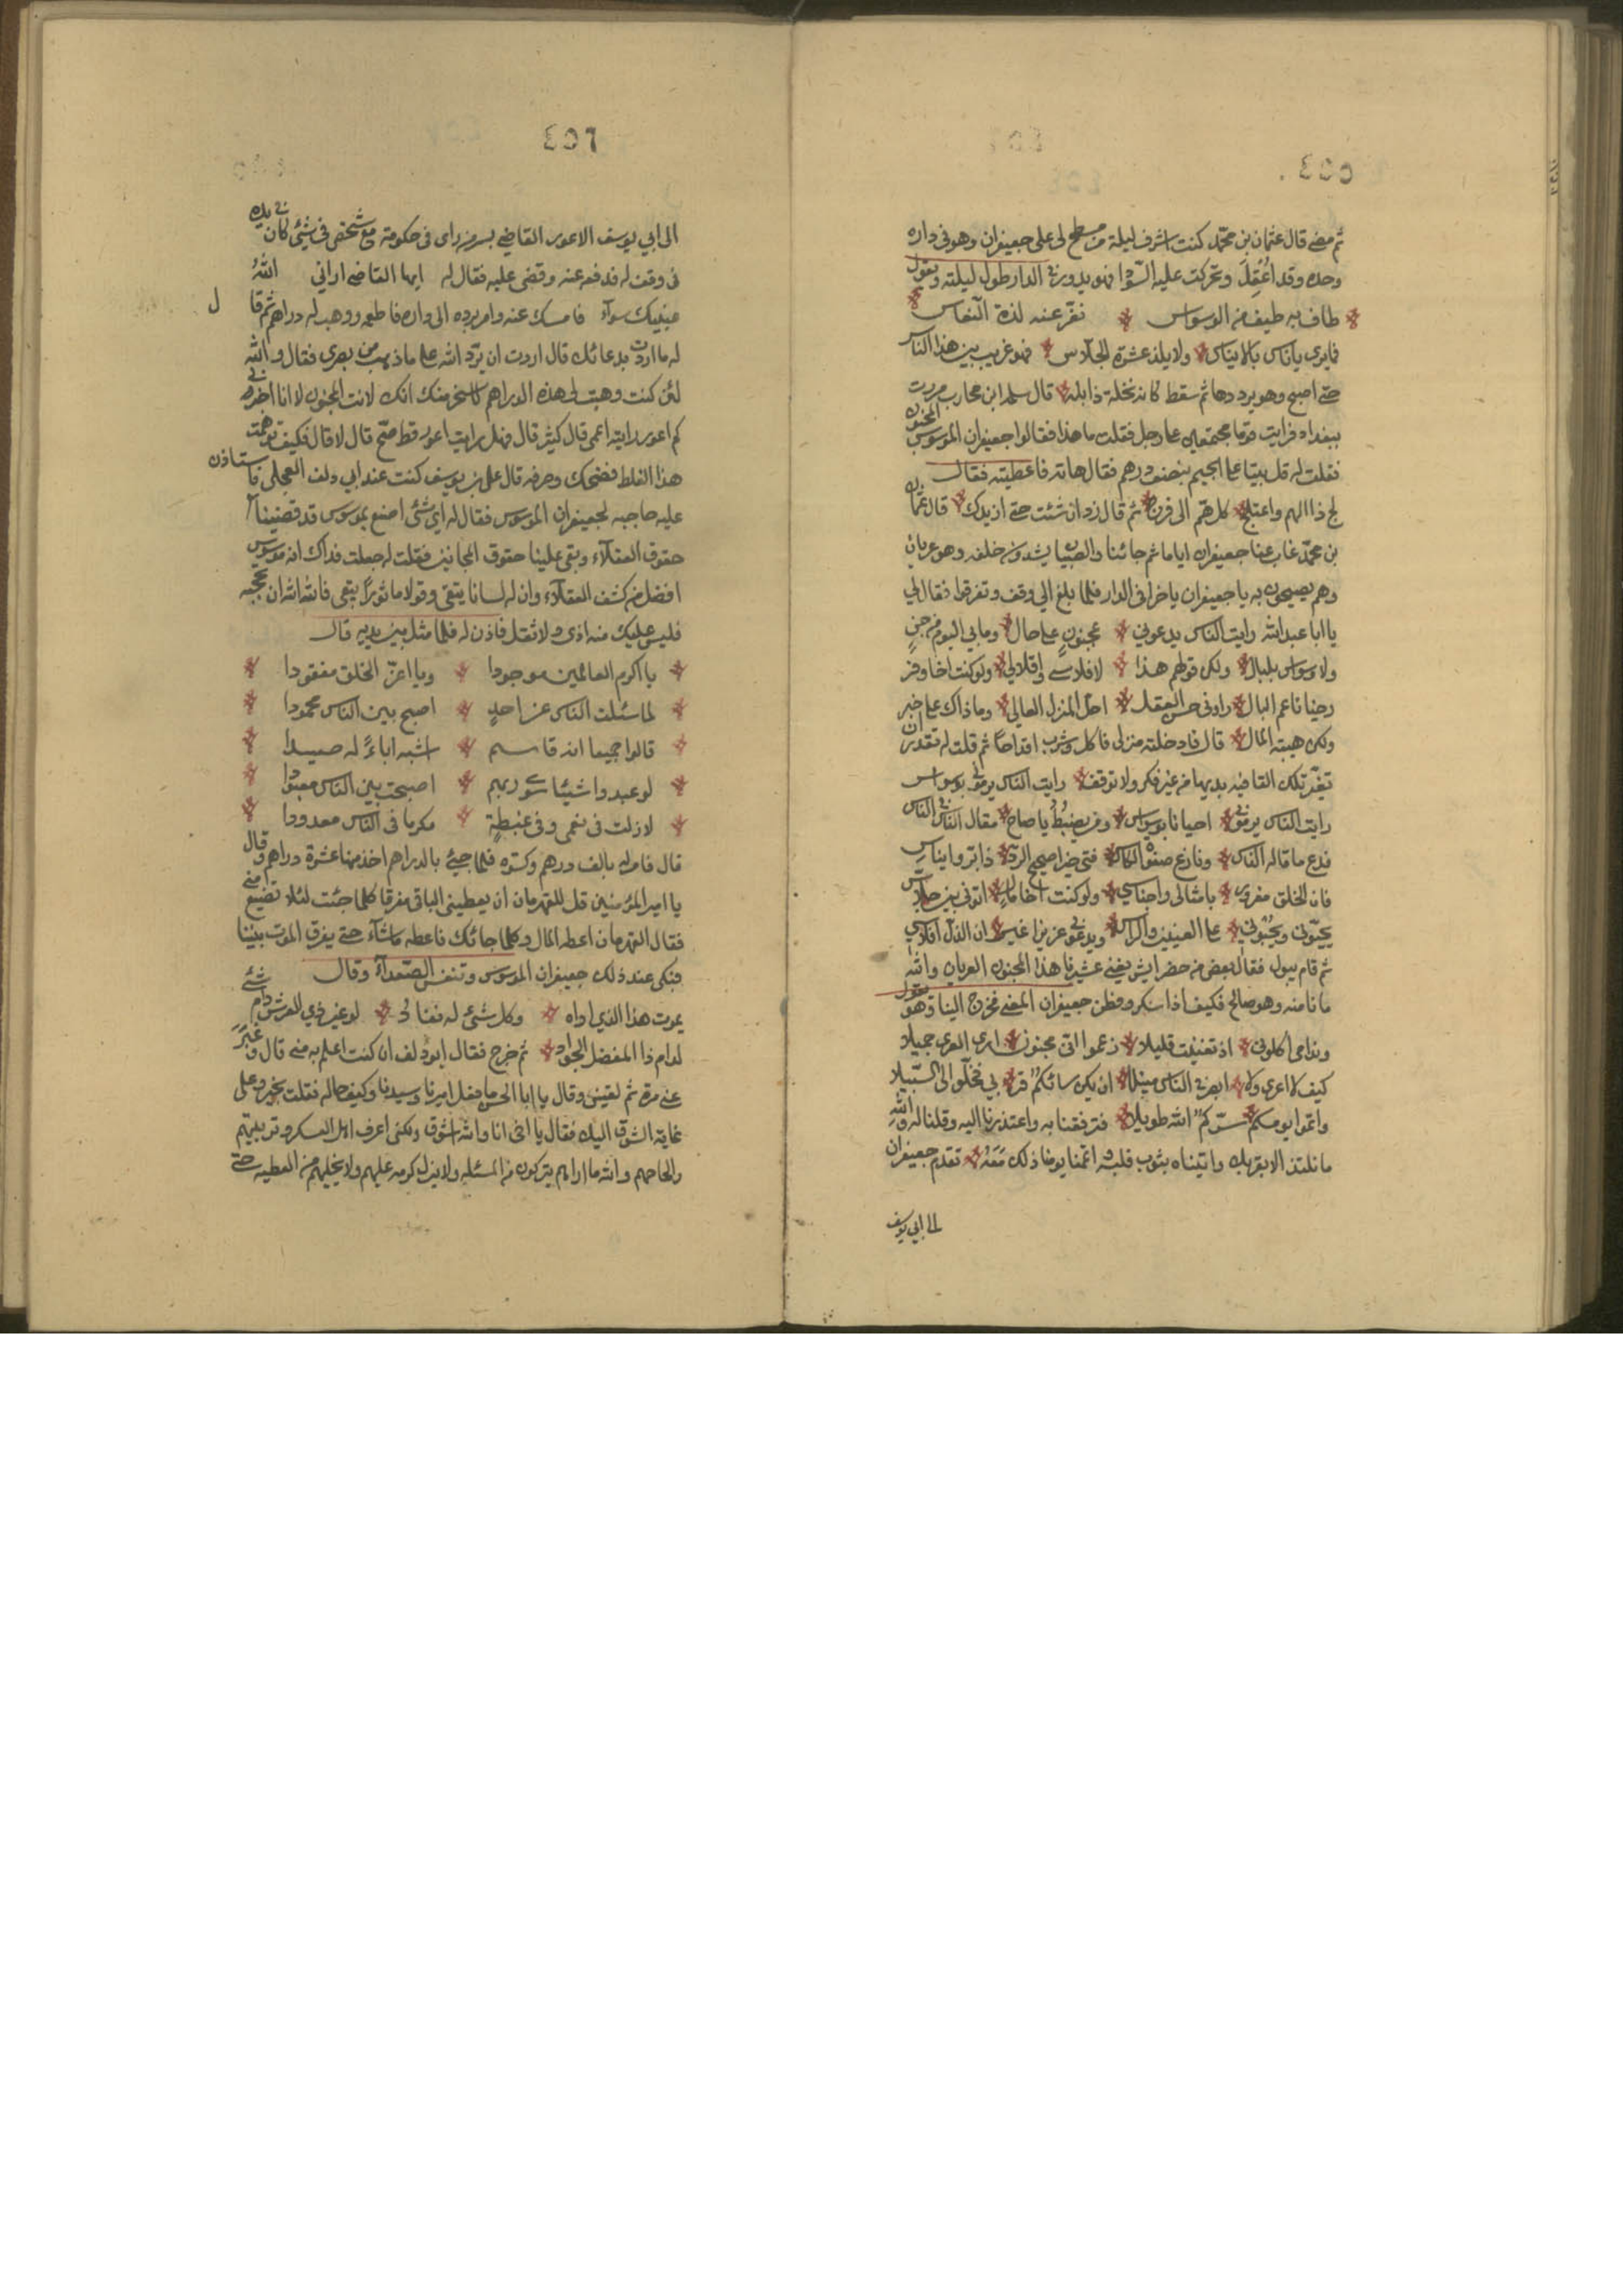 ٤٥٥
ثم مضى قال عثمان بن محمد كنت اشرف ليلة من سطح لى على جعيفران وهو فى داره
وحده وقد اعتل وتحركت عليه السودا فهو يدور فى الدار طول ليلته ويقول
طاف به طيف من الوسواس نفر عنه لذة النعاس
فما يرى يأنس بالاناس ولا يلذ عشرة الجلاس فهو غريب بين هذا الناس
حتى اصبح وهو يرددها ثم سقط كانه نخلة ذابلة قال سلمه ابن محارب مررت
ببغداد فرايت قوما مجتمعين على رجل فقلت ما هذا فقالوا جعيفران الموسوس المجنون
فقلت له قل بيتا على الجيم بنصف درهم فقال هاته فاعطيته فقال
لج ذا الهم واعتلج كل هم الى فرج ثم قال زد ان شئت حتى ازيدك قال عثمان
بن محمد غاب عنا جعيفران اياما ثم جائنا والصبيان يشدون خلفه وهو عريان
وهم يصيحون به يا جعيفران يا خرا فى الدار فلما بلغ الي وقف وتفرقوا فقال لي
يا ابا عبد الله رايت الناس يدعوني بمجنون على حال وما بي اليوم من جن
ولا وسواس بلبال ولكن قولهم هذا لافلاسي واقلالي ولو كنت اخا وفر
رخيا ناعم البال راونى حسن العقل احل المنزل العالي وما ذاك على خبر
ولكن هيبة المال قال فادخلته منزلى فاكل وشرب اقداحا ثم قلت له تقدر ان
تغير تلك القافيه بديها من غير فكر ولا توقف رايت الناس يرموني بوسواس
رايت الناس يرموني احيانا بوسواس ومن يضبط يا صاح مقال الناس فى الناس
فدع ما قاله الناس ونازع صفوة الكاس فتى حرا صحيح الود ذا بر وايناس
فان الخلق مغرور بامثالى واجناسي ولو كنت اخا مال اتونى بين جلاس
يحبونى ويحبوني على العينين والراس ويدعوني عزيزا غير ان الذل افلاسي
ثم قام يبول فقال بعض من حضر ايش يغني عشرنا هذا المجنون العريان والله
ما نامنه وهو صالح فكيف اذا سكر وفطن جعيفران المعنى فخرج الينا وهو يقول
وندامى اكلونى اذ تغيبت قليلا زعموا انى مجنون ارى العرى جميلا
كيف لا اعرى ولا ابصر فى الناس مثيلا ان يكن سائكم قربي فخلوا الى السبيلا
واتموا يومكم سركم الله طويلا فترفقنا به واعتذرنا اليه وقلنا له والله
ما نلتذ الا بقربك واتيناه بثوب فلبسه اتممنا يومنا ذلك معه تقدم جعيفران
الى ابي يوسف
٤٥٦
الى ابي يوسف الاعور القاضي بسر من راى فى حكومة مع شخص فى شيئ كان فى يده
فى وقف له فدفعه عنه وقضى عليه فقال له ايها القاضى ارانى الله
عينيك سوآء فامسك عنه وامر برده الى داره فاطعمه ووهب له دراهم ثم قال
له ما اردت بدعائك قال اردت ان يرد الله على ما ذهب من بصرى فقال والله
لئن كنت وهبت لى هذه الدراهم لاسخر منك انك لانت المجنون لا انا اخبرنى
كم اعور رايته اعمى قال كثير قال فهل رايت اعور قط صح قال لا قال فكيف توهمت
هذا الغلط فضحك وصرفه قال على بن يوسف كنت عند ابي دلف العجلى فاستاذن
عليه حاجبه لجعيفران الموسوس فقال له اي شئى اصنع بموسوس قد قضينا
حقوق العقلاء وبقى علينا حقوق المجانين فقلت له جعلت فداك انه موسوس
افضل من كشف العقلاء وان له لسانا يتقى وقولا ماثورا يبقى فالله الله ان تحجبه
فليس عليك منه اذى ولا ثقل فاذن له فلما مثل بين يديه قال
يا اكرم العالمين موجودا ويا اعز الخلق مفقودا
لما سئلت الناس عن احد اصبح بين الناس محمودا
قالوا جميعا انه قاسم اشبه اباء له صيدا
لو عبدوا شيئا سوى ربهم اصبحت بين الناس معبودا
لا زلت فى نعمى وفى غبطة مكرما فى الناس معدودا
قال فامر له بالف درهم وكسوة فلما جيئ بالدراهم اخذ منها عشرة دراهم وقال
يا امير المؤمنين قل للقهرمان ان يعطينى الباقى مفرقا كلما جئت لئلا تضيع منى
فقال للقهرمان اعطه المال وكلما جائك فاعطه ما شآء حتى يفرق الموت بيننا
فبكى عند ذلك جعيفران الموسوس وتنفس الصعدآء وقال
يموت هذا الذى اراه وكل شئى له نفاد لو غير ذي العرش دام شئى
لدام ذا المفضل الجواد ثم خرج فقال ابو دلف ان كنت اعلم به منى قال وغبر
عنى مرة ثم لقينى وقال يا ابا الحسن ما فعل اميرنا وسيدنا وكيف حاله فقلت بخير وعلى
غاية الشوق اليك فقال يا اخى انا والله اشوق ولكنى اعرف اهل العسكر وترتيبهم
والحاحهم والله ما اراهم يتركون من المسئله ولا يزال كرمه عليهم ولا يخليهم من العطيه حتى